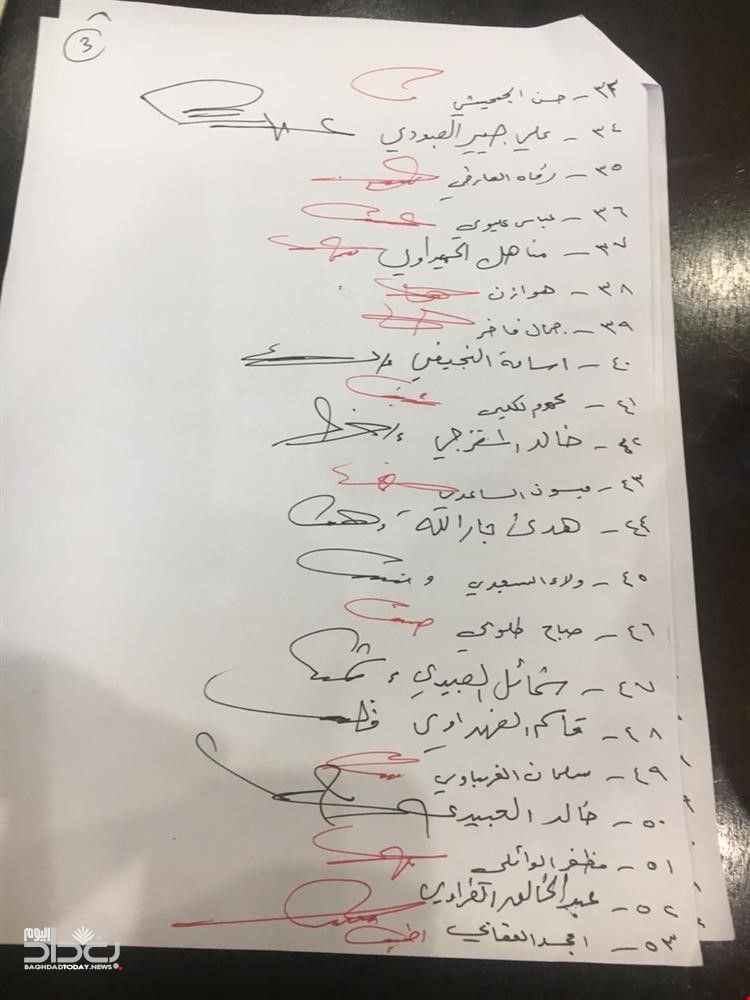 3
٣٣ - حسن الجحيشي
٣٤ - علي جبير العبودي
٣٥ - رفاه العارضي
٣٦ - عباس عليوي
٣٧ - مناهل الحميداوي
٣٨ - هوازن
٣٩ - جمال فاخر
٤٠ - اسامة النجيفي
٤١ -
٤٢ - خالد المفرجي
٤٣ - ميسون الساعدي
٤٤ - هدى جار الله
٤٥ - ولاء السعدي
٤٦ - صباح طلوبي
٤٧ - شمائل العبيدي
٤٨ - قاسم الفهداوي
٤٩ - سلمان الغريباوي
٥٠ - خالد العبيدي
٥١ - مظفر الوائلي
٥٢ - عبد الخالق
٥٣ - امجد العقابي
بغداد اليوم
BAGHDADTODAY.NEWS